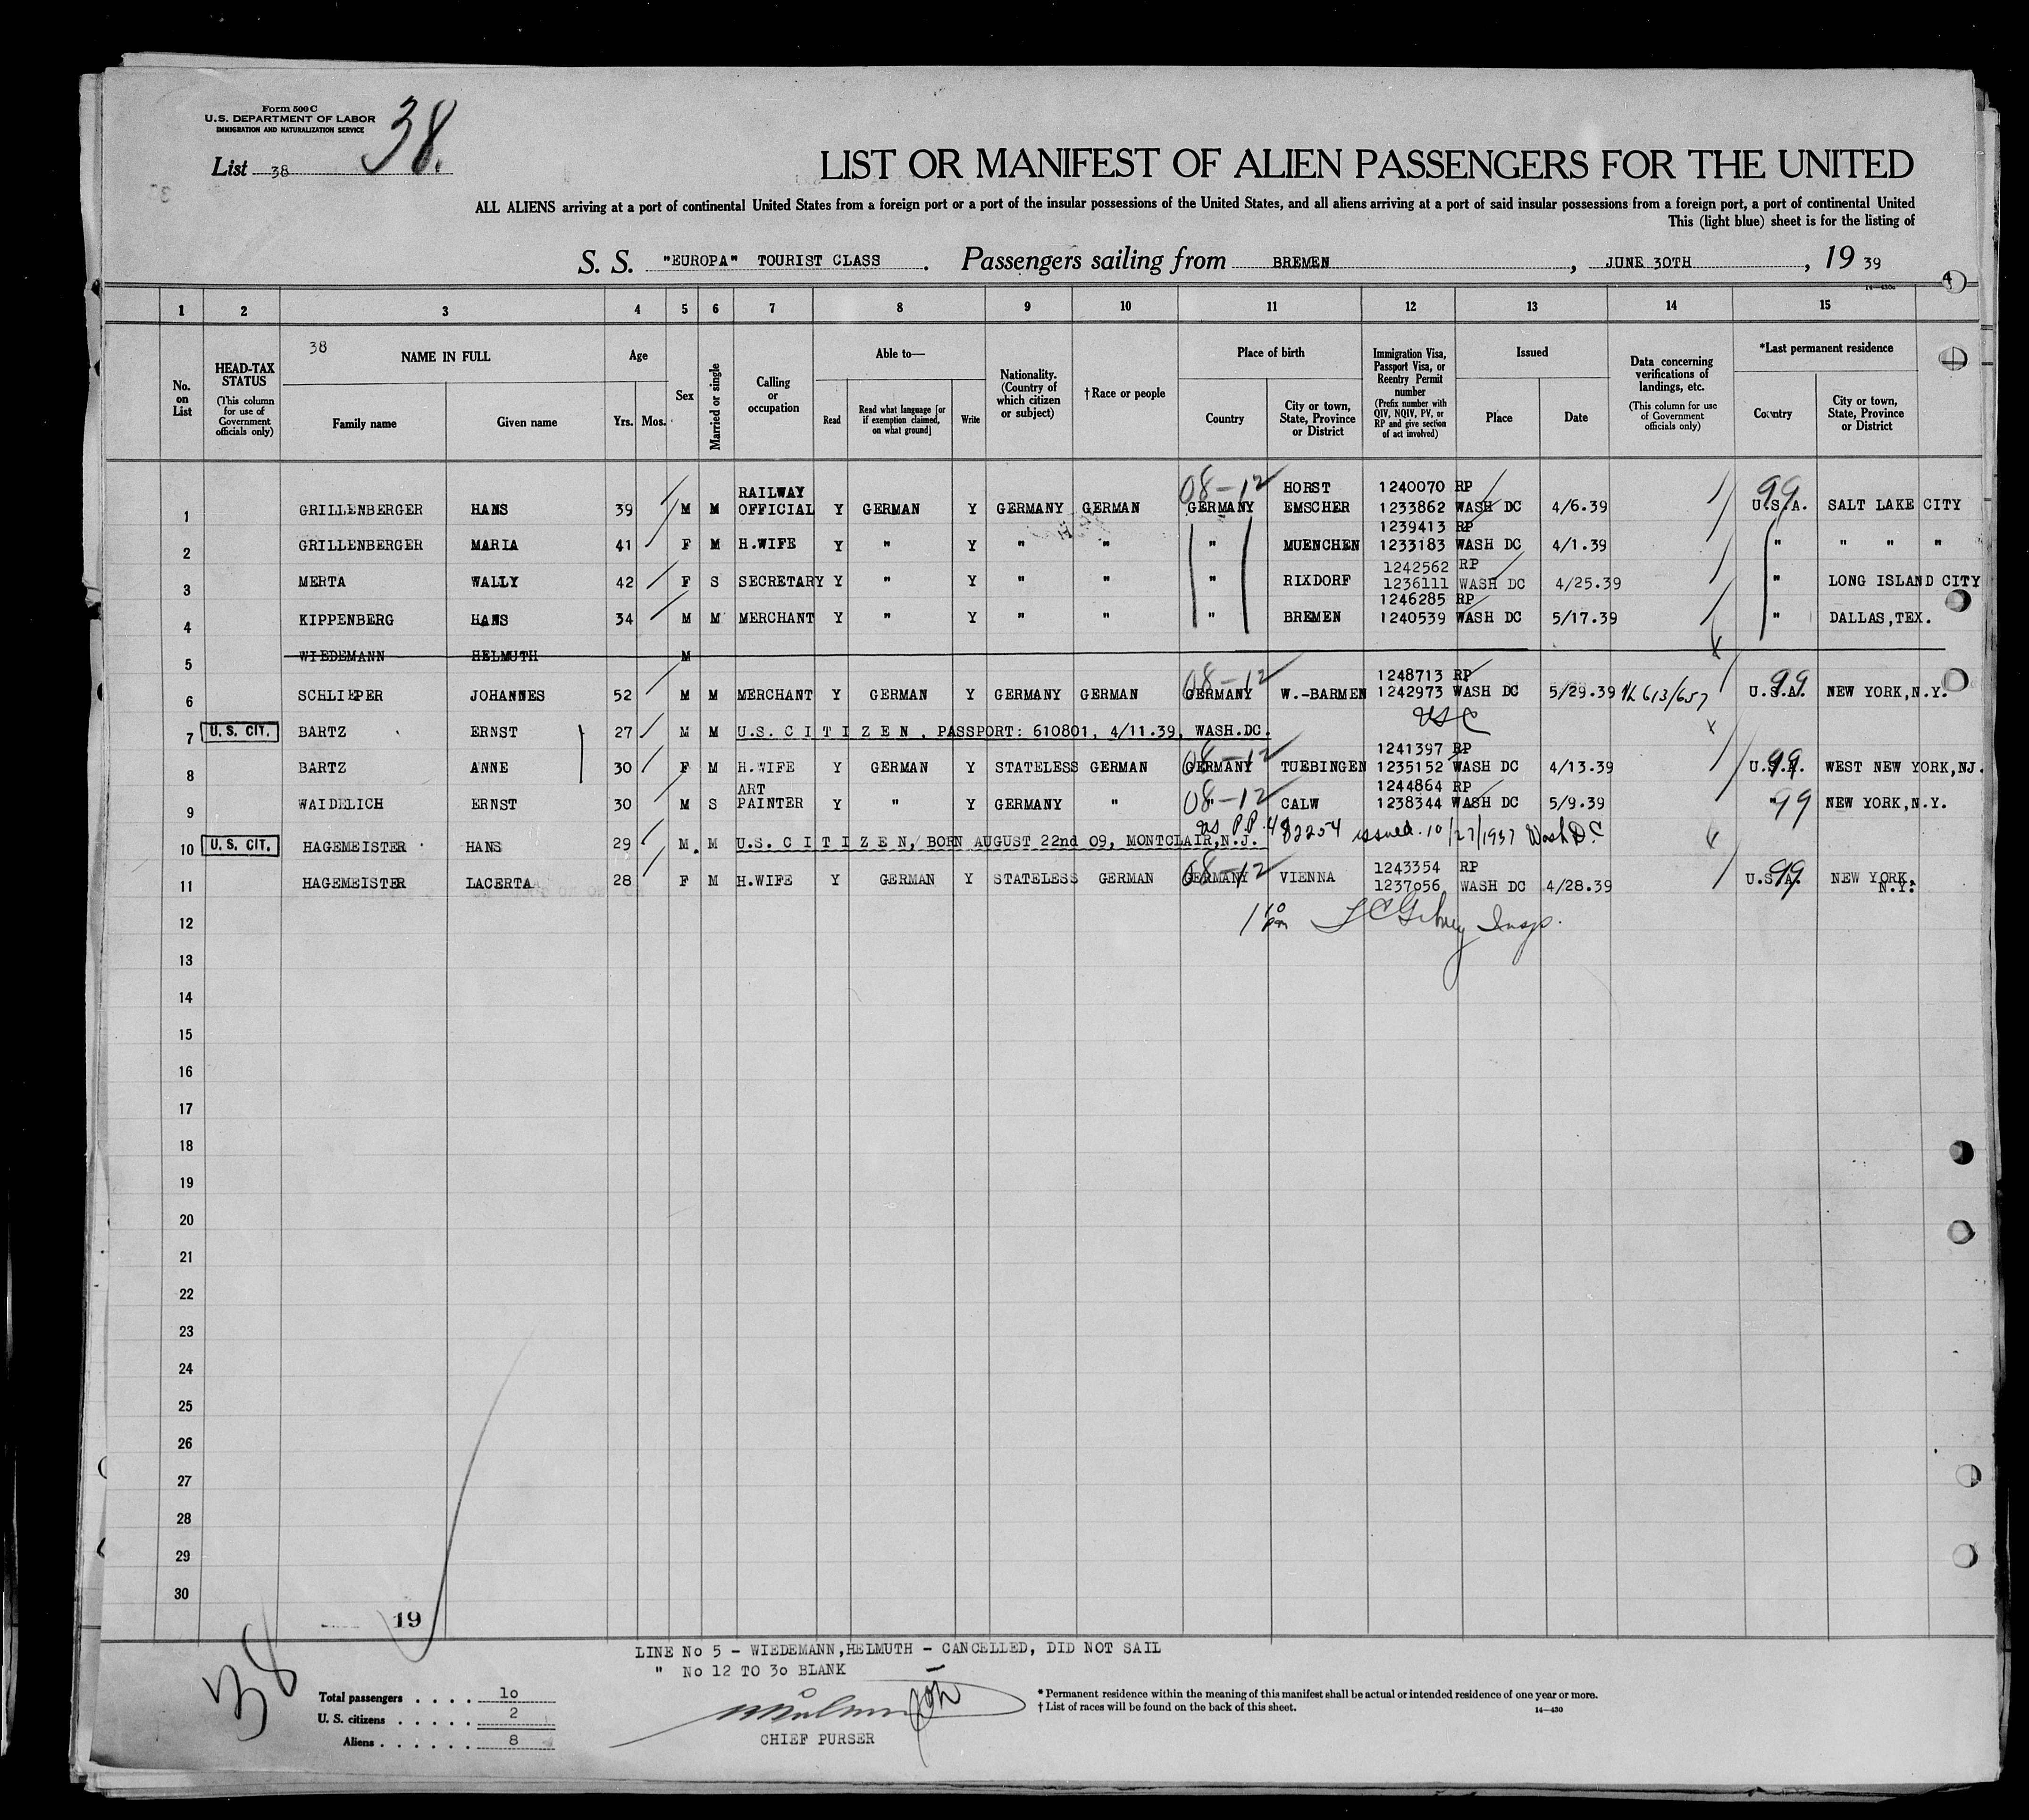 Form 500 C
U.S. DEPARTMENT OF LABOR
IMMIGRATION AND NATURALIZATION SERVICE
List 38
38.
LIST OR MANIFEST OF ALIEN PASSENGERS FOR THE UNITED
ALL ALIENS arriving at a port of continental United States from a foreign port or a port of the insular possessions of the United States, and all aliens arriving at a port of said insular possessions from a foreign port, a port of continental United
This (light blue) sheet is for the listing of
S. S. "EUROPA" TOURIST CLASS . Passengers sailing from BREMEN , JUNE 30TH , 19 39
14—430c
4
1 2 3 4 5 6 7 8 9 10 11 12 13 14 15
No. on List
HEAD-TAX STATUS (This column for use of Government officials only)
38 NAME IN FULL
Family name Given name
Age Yrs. Mos.
Sex
Married or single
Calling or occupation
Able to— Read Read what language [or if exemption claimed, on what ground] Write
Nationality. (Country of which citizen or subject)
† Race or people
Place of birth Country City or town, State, Province or District
Immigration Visa, Passport Visa, or Reentry Permit number (Prefix number with QIV, NQIV, PV, or RP and give section of act involved)
Issued Place Date
Data concerning verifications of landings, etc. (This column for use of Government officials only)
*Last permanent residence Country City or town, State, Province or District
RAILWAY 08-12 HORST 1240070 RP 99
1 GRILLENBERGER HANS 39 M M OFFICIAL Y GERMAN Y GERMANY GERMAN GERMANY EMSCHER 1233862 WASH DC 4/6.39 U.S.A. SALT LAKE CITY
1239413 RP
2 GRILLENBERGER MARIA 41 F M H.WIFE Y " Y " " " MUENCHEN 1233183 WASH DC 4/1.39 " " " "
1242562 RP
3 MERTA WALLY 42 F S SECRETARY Y " Y " " " RIXDORF 1236111 WASH DC 4/25.39 " LONG ISLAND CITY
1246285 RP
4 KIPPENBERG HANS 34 M M MERCHANT Y " Y " " " BREMEN 1240539 WASH DC 5/17.39 " DALLAS,TEX.
5 WIEDEMANN HELMUTH M
08-12 1248713 RP 99
6 SCHLIEPER JOHANNES 52 M M MERCHANT Y GERMAN Y GERMANY GERMAN GERMANY W.-BARMEN 1242973 WASH DC 5/29.39 613/657 U.S.A. NEW YORK,N.Y.
USC
7 U. S. CIT. BARTZ ERNST 27 M M U.S. C I T I Z E N , PASSPORT: 610801, 4/11.39, WASH.DC.
08-12 1241397 RP
8 BARTZ ANNE 30 F M H.WIFE Y GERMAN Y STATELESS GERMAN GERMANY TUEBINGEN 1235152 WASH DC 4/13.39 U.S.A. 99 WEST NEW YORK,NJ.
ART 1244864 RP
9 WAIDELICH ERNST 30 M S PAINTER Y " Y GERMANY " " 08-12 CALW 1238344 WASH DC 5/9.39 " 99 NEW YORK,N.Y.
us P.P. 482254 issued 10/27/1937 Wash D.C
10 U. S. CIT. HAGEMEISTER HANS 29 M. M U.S. C I T I Z E N, BORN AUGUST 22nd 09, MONTCLAIR,N.J.
08-12 1243354 RP
11 HAGEMEISTER LACERTA 28 F M H.WIFE Y GERMAN Y STATELESS GERMAN GERMANY VIENNA 1237056 WASH DC 4/28.39 U.S.A. 99 NEW YORK, N.Y.
12 1 10 pm Insp.
13
14
15
16
17
18
19
20
21
22
23
24
25
26
27
28
29
30
19
38
LINE No 5 - WIEDEMANN,HELMUTH - CANCELLED, DID NOT SAIL
" No 12 TO 30 BLANK
Total passengers . . . . 10
U. S. citizens . . . . . 2
Aliens . . . . . . 8
CHIEF PURSER
* Permanent residence within the meaning of this manifest shall be actual or intended residence of one year or more.
† List of races will be found on the back of this sheet.
14—430